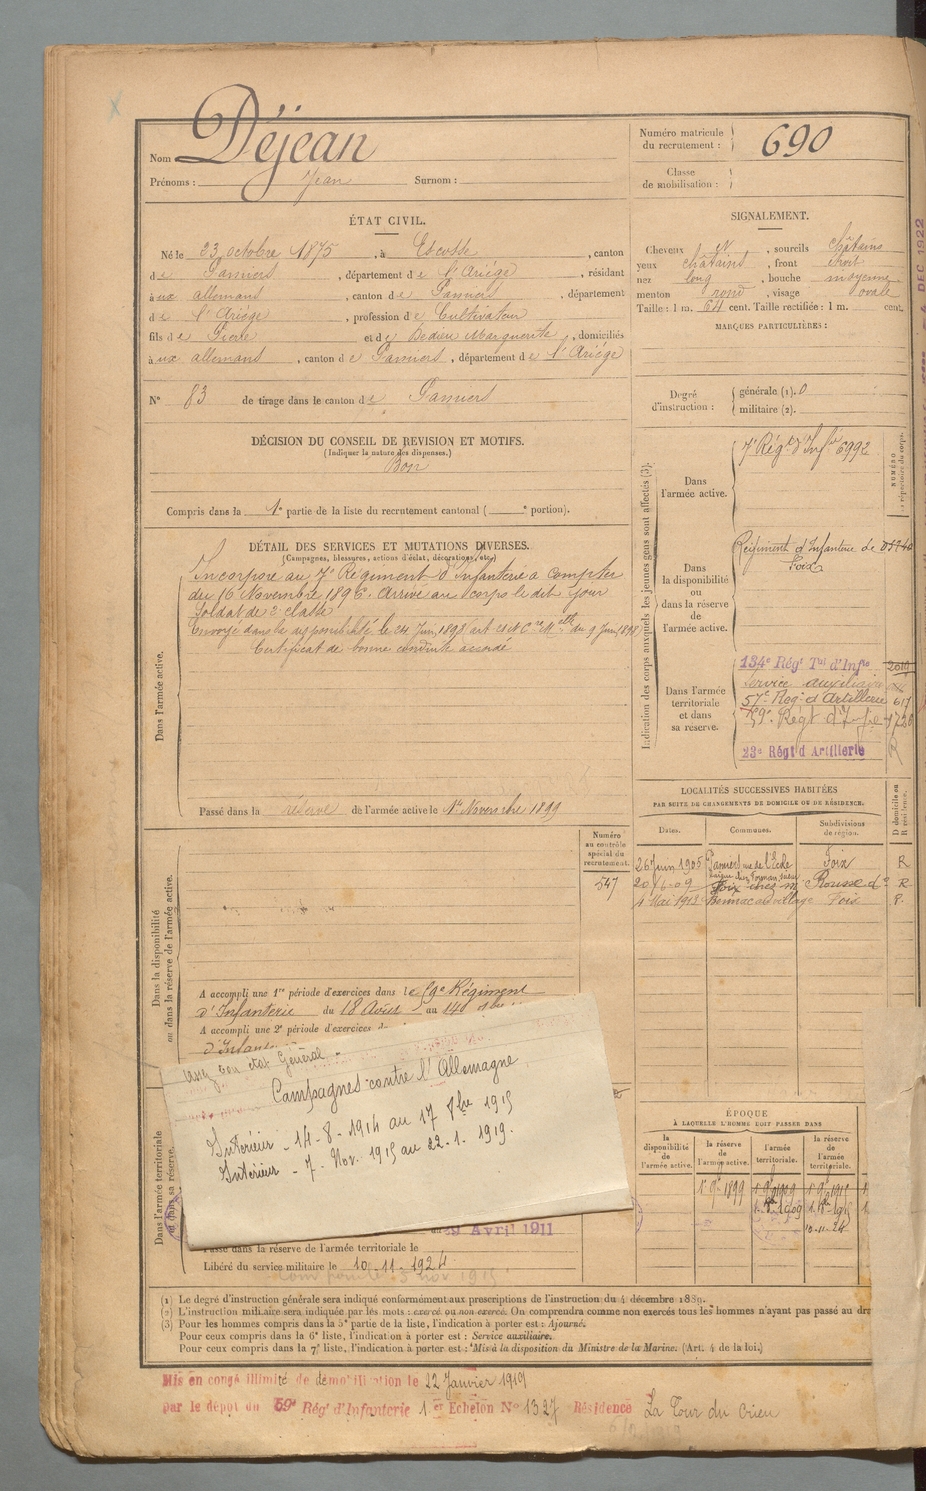 Nom Déjean
Prénoms : Jean Surnom :
Numéro matricule du recrutement : 690
Classe de mobilisation :
ÉTAT CIVIL.
Né le 23 octobre 1875, à Escosse, canton
de Pamiers, département de l'Ariège, résidant
à aux allemans, canton de Pamiers, département
de l'Ariège, profession de Cultivateur
fils de Pierre et de Dedieu Marguerite, domiciliés
à aux allemans, canton de Pamiers, département de l'Ariège
N° 83 de tirage dans le canton de Pamiers
SIGNALEMENT.
Cheveux et, sourcils châtains
yeux châtains, front droit
nez long, bouche moyenne
menton rond, visage ovale
Taille : 1 m. 64 cent. Taille rectifiée : 1 m. cent.
MARQUES PARTICULIÈRES :
Degré d'instruction : générale (1). 0
militaire (2).
DÉCISION DU CONSEIL DE REVISION ET MOTIFS.
(Indiquer la nature des dispenses.)
Bon
Compris dans la 1e partie de la liste du recrutement cantonal ( e portion).
DÉTAIL DES SERVICES ET MUTATIONS DIVERSES.
(Campagnes, blessures, actions d'éclat, décorations, etc.)
Dans l'armée active.
Incorporé au 7e Régiment d'Infanterie à compter
du 16 Novembre 1896. Arrivé au corps le dit jour
Soldat de 2e classe
Envoyé dans la disponibilité le 24 Juin 1898 du 9 Juin 1898
Certificat de bonne conduite accordé
Passé dans la réserve de l'armée active le 1er Novembre 1899
Indication des corps auxquels les jeunes gens sont affectés (3).
NUMÉRO
Dans l'armée active.
7e Régt d'Infie 6992
Dans la disponibilité ou dans la réserve de l'armée active.
Régiment d'Infanterie de Foix
Dans l'armée territoriale et dans sa réserve.
134e Régt Tal d'Infie
Service auxiliaire
57e Rég. d'Artillerie 617
59e Régt d'Infie
23e Régt d'Artillerie R
LOCALITÉS SUCCESSIVES HABITÉES
PAR SUITE DE CHANGEMENTS DE DOMICILE OU DE RÉSIDENCE.
Dates. Communes. Subdivisions de région. D domicile ou R résidence.
26 Juin 1905 Pamiers rue de l'École Foix R
20-6-09 R
4 Mai 1913 Bonnac au village Foix R.
Numéro au contrôle spécial du recrutement.
547
Dans la disponibilité ou dans la réserve de l'armée active.
A accompli une 1re période d'exercices dans le 59e Régiment
d'Infanterie du 18 Août au 14
A accompli une 2e période d'exercices
d'Infan
assez bon état Général.
Campagnes contre l'Allemagne
Intérieur - 14-8-1914 au 17 1915
Intérieur - 7 - Nov. 1915 au 22-1-1919.
Dans l'armée territoriale ou dans sa réserve.
9 Avril 1911
Passé dans la réserve de l'armée territoriale le
Libéré du service militaire le 10-11-1924
ÉPOQUE
À LAQUELLE L'HOMME DOIT PASSER DANS
la disponibilité de l'armée active. la réserve de l'armée active. l'armée territoriale. la réserve de l'armée territoriale.
1er 9bre 1899 1er 9bre 1909
10-11-24
(1) Le degré d'instruction générale sera indiqué conformément aux prescriptions de l'instruction du 4 décembre 1889.
(2) L'instruction militaire sera indiquée par les mots : exercé ou non exercé. On comprendra comme non exercés tous les hommes n'ayant pas passé au dra
(3) Pour les hommes compris dans la 5e partie de la liste, l'indication à porter est : Ajourné.
Pour ceux compris dans la 6e liste, l'indication à porter est : Service auxiliaire.
Pour ceux compris dans la 7e liste, l'indication à porter est : Mis à la disposition du Ministre de la Marine. (Art. 4 de la loi.)
Mis en congé illimité de démobilisation le 22 Janvier 1919
par le dépôt du 59e Rég' d'Infanterie 1er Echelon N° 1327 Résidence La Tour du Crieu
DEC 1922